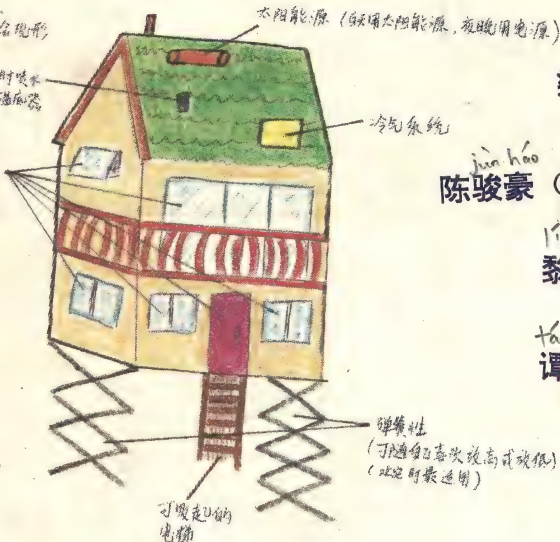 太阳能源（白天用太阳能源，夜晚用电源）
会隐形
时喷水
温感器
冷气系统
jùn háo
陈骏豪（
黎
谭
弹簧性
（可随自己喜欢放高或放低）
时最适用）
可收起的
电梯